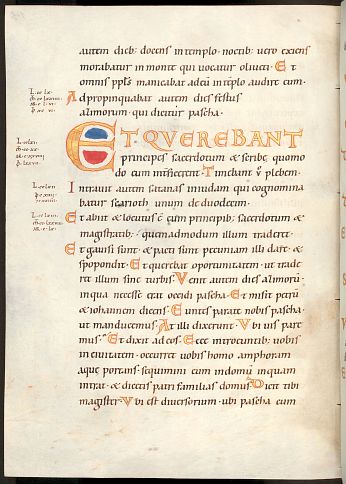 autem dieb; docens in templo · noctib; uero exiens
morabatur in monte qui uocatur oliueti · Et
omnis ppls manicabat ad eū in tēplo audire eum ·
Adpropinquabat autem dies festus
azimorum · qui dicitur pascha ·
ET · QVEREBANT
principes sacerdotum & scribe quomo
do eum interficerent · Timebant ū plebem ·
Intrauit autem satanas in iudam qui cognomina
batur scarioth · unum de duodecim ·
Et abiit & locutus ē cum principib; sacerdotum &
magistratib; · quemadmodum illum traderet
Et gauisi sunt · & pacti sunt pecuniam illi dare · &
spopondit · Et querebat oportunitatem · ut trade
ret illum sine turbis · Venit autem dies azimorū ·
in qua necesse erat occidi pascha · Et misit petrū
& iohannem dicens · Euntes parate nobis pascha ·
ut manducemus · At illi dixerunt · Vbi uis pare
mus · Et dixit ad eos · Ecce introeuntib; uobis
in ciuitatem · occurret uobis homo amphoram
aque portans · sequimini eum in domū in quam
intrat · & dicetis patri familias domus · Dicit tibi
magister · Vbi est diuersorium · ubi pascha cum